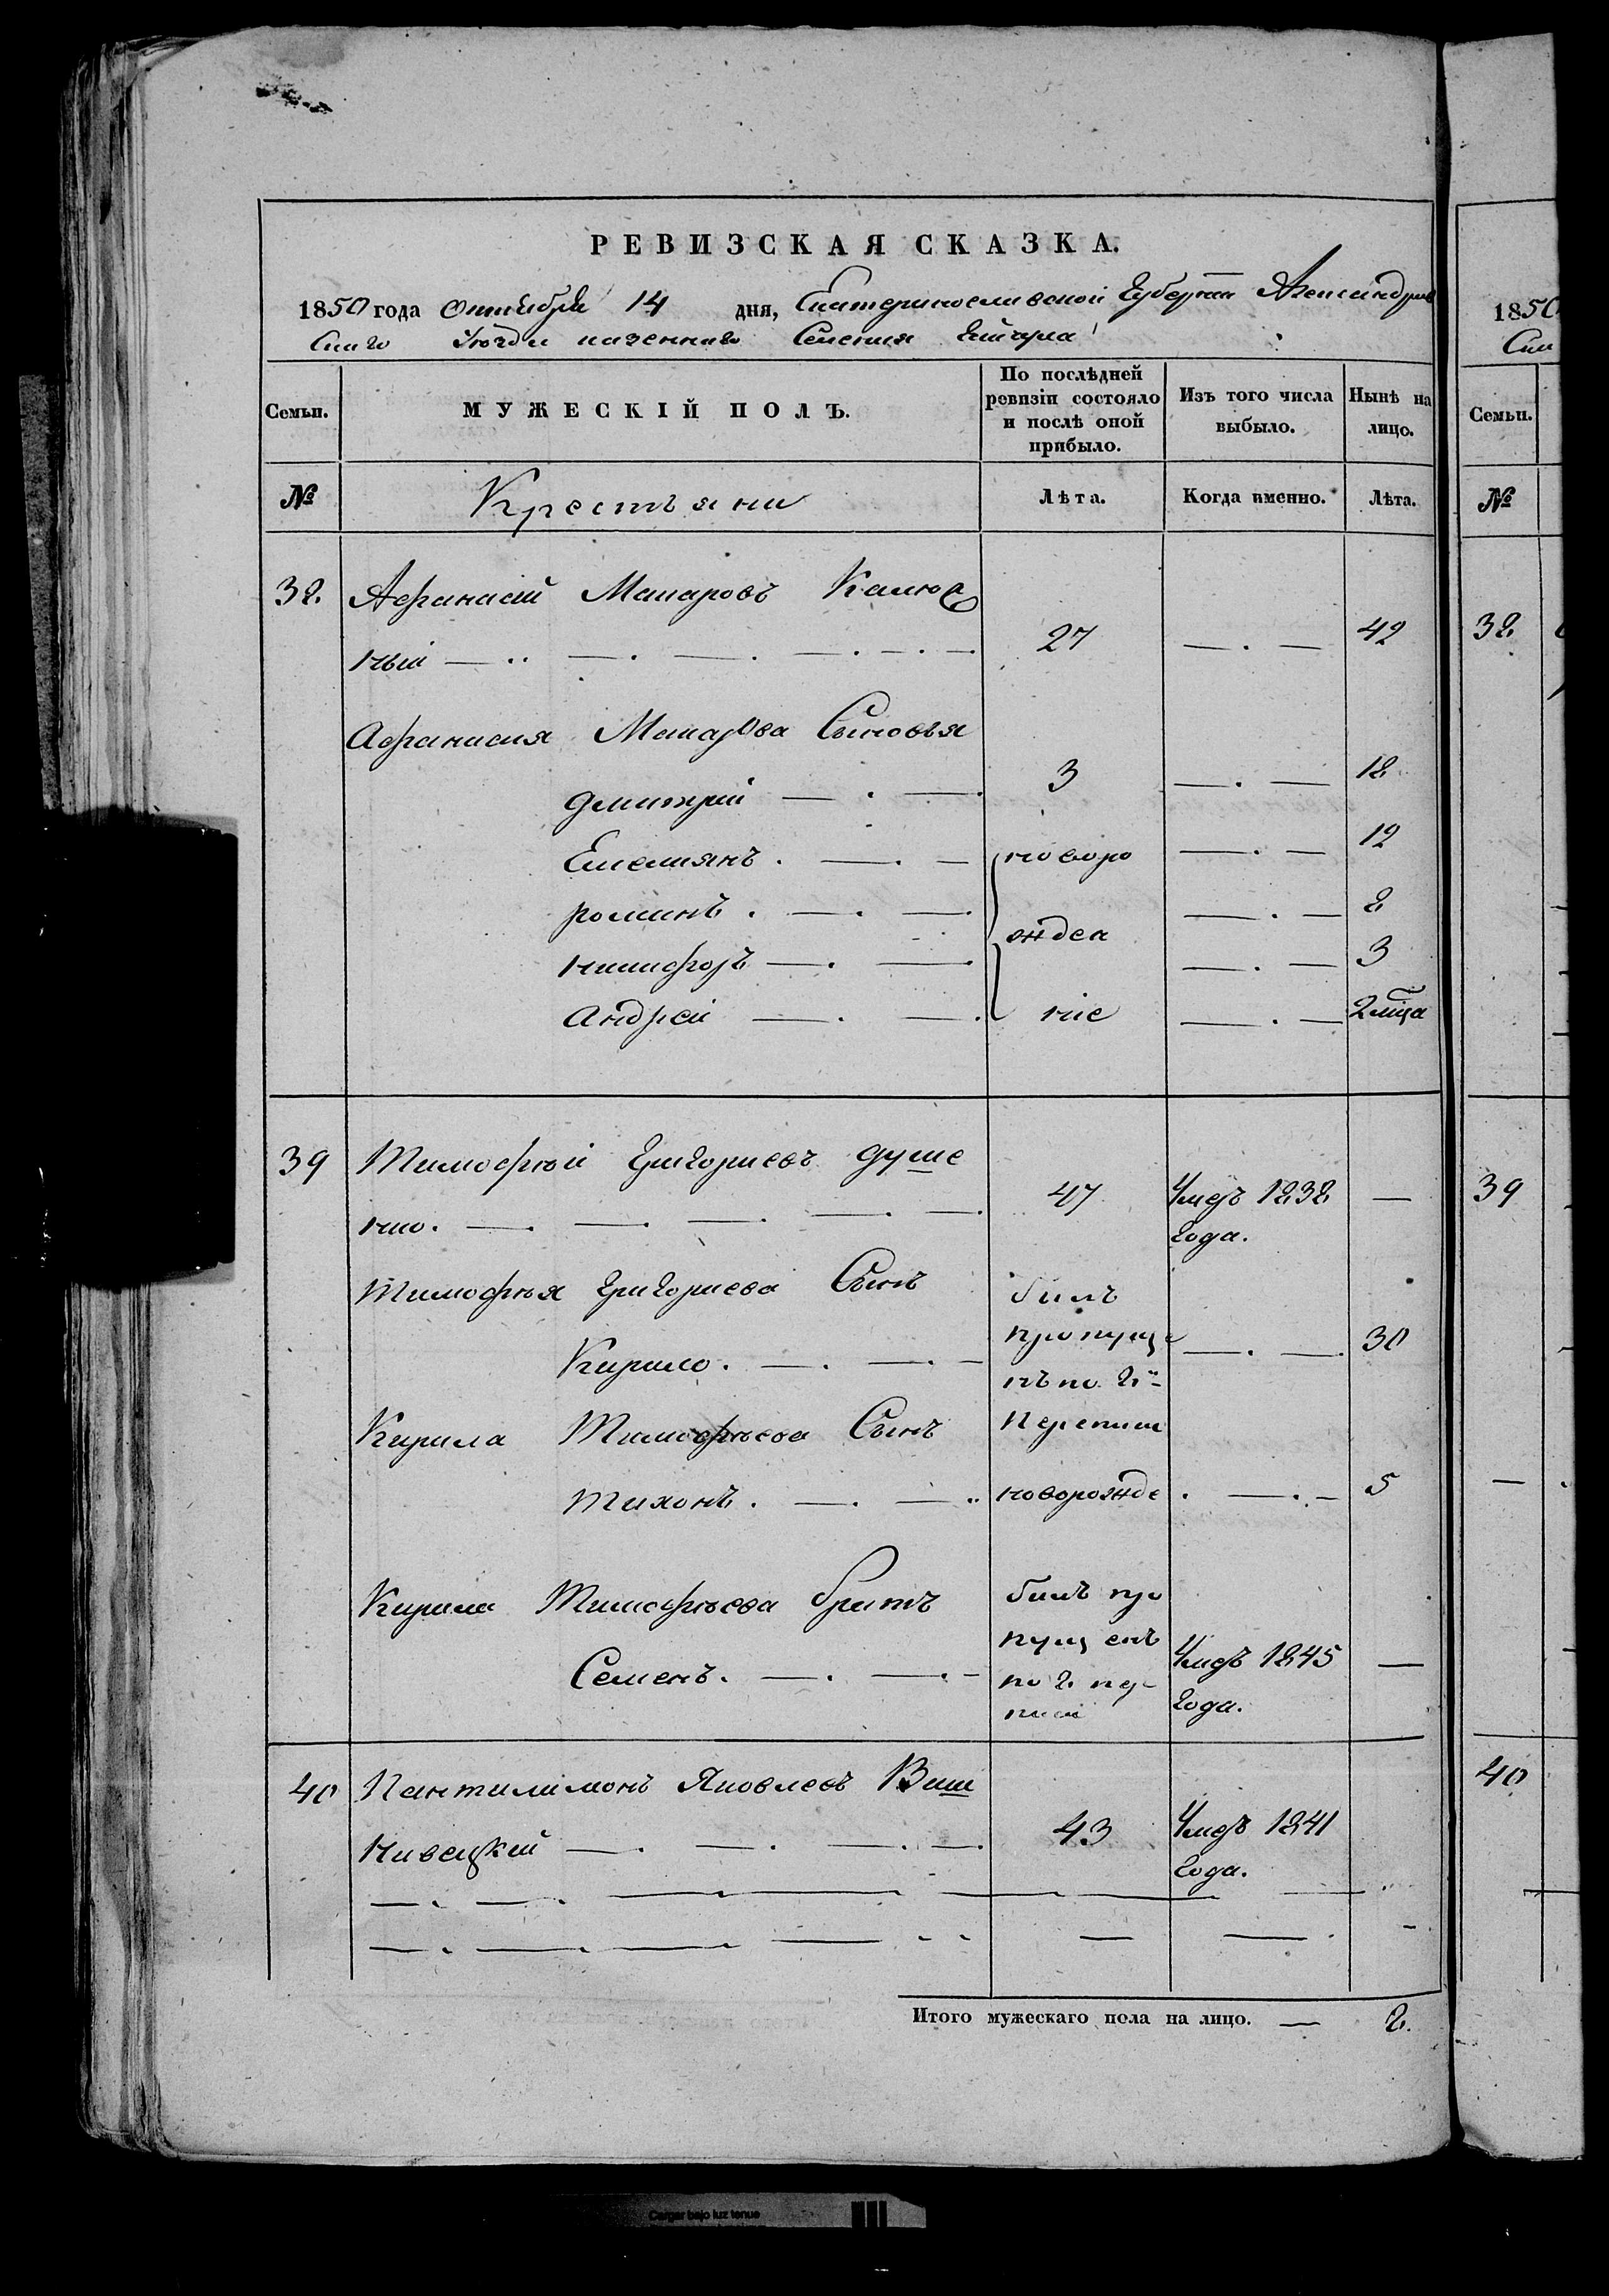 РЕВИЗСКАЯ СКАЗКА.
1850 года Октября 14 дня, Екатеринославской Губерніи Александров
Скаго Уѣзда казеннаго Селенія
Семьи. МУЖЕСКІЙ ПОЛЪ. По послѣдней ревизіи состояло и послѣ оной прибыло. Изъ того числа выбыло. Нынѣ на лицо.
№ Крестьяни Лѣта. Когда именно. Лѣта.
38. Афанасій Макаровъ Калюж
ный 27 42
Афанасия Макарова Сыновья
Дмитрій 3 18
Емелиянъ новоро 12
романъ 8
никифоръ жден 3
Андрей ніе 2 мца
39 Тимофѣй Григориевъ душе
нко. 47 Умеръ 1838
года.
Тимофѣя Григориева Сынъ билъ
Кирило. пропуще 30
нъ по 8й
Кирила Тимофѣева Сынъ Перепис
Тихонъ. новорожде 5
Кирила Тимофѣева братъ билъ про
пущенъ
Семенъ. по 8 пер Умеръ 1845
писи года.
40 Пантилимонъ Яковлевъ Виш
нивецкий 43 Умеръ 1841
года.
Итого мужескаго пола на лицо. 8.
1850
Ска
Семьи.
№
38
39
40
Cargar bajo luz tenue